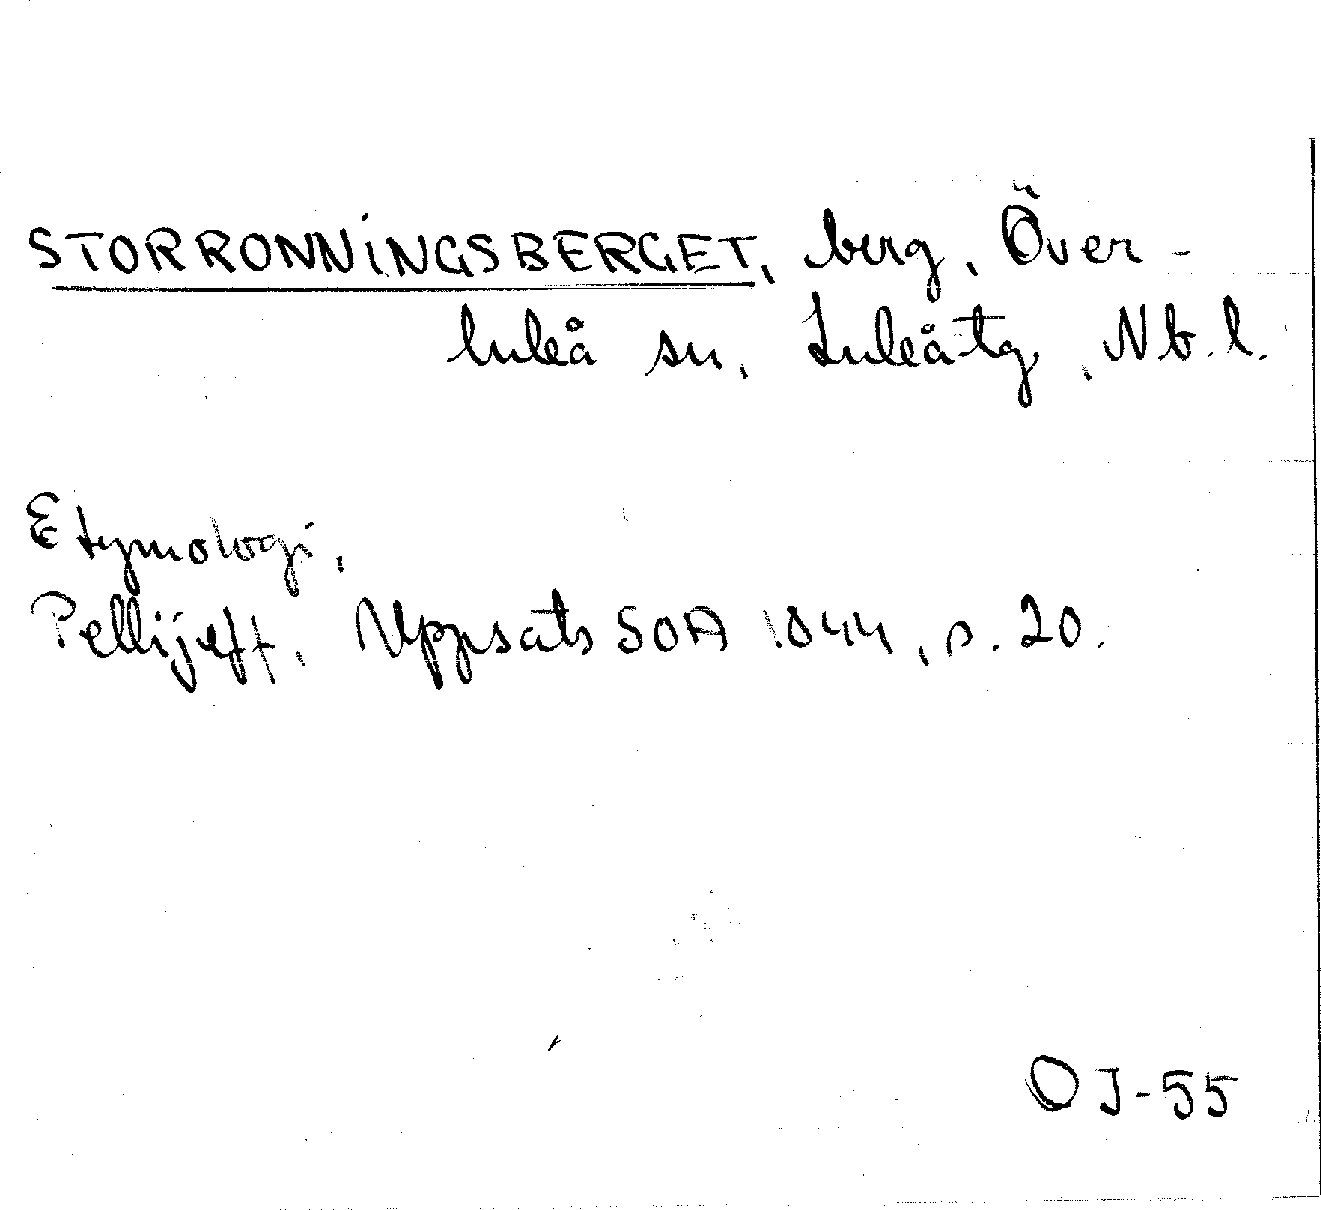 STORRONNINGSBERGET, berg, Över-
luleå sn, Luleå tg, Nb. l.
Etymologi,
Pellijeff, Uppsats SOA 1844, s. 20.
OJ-55